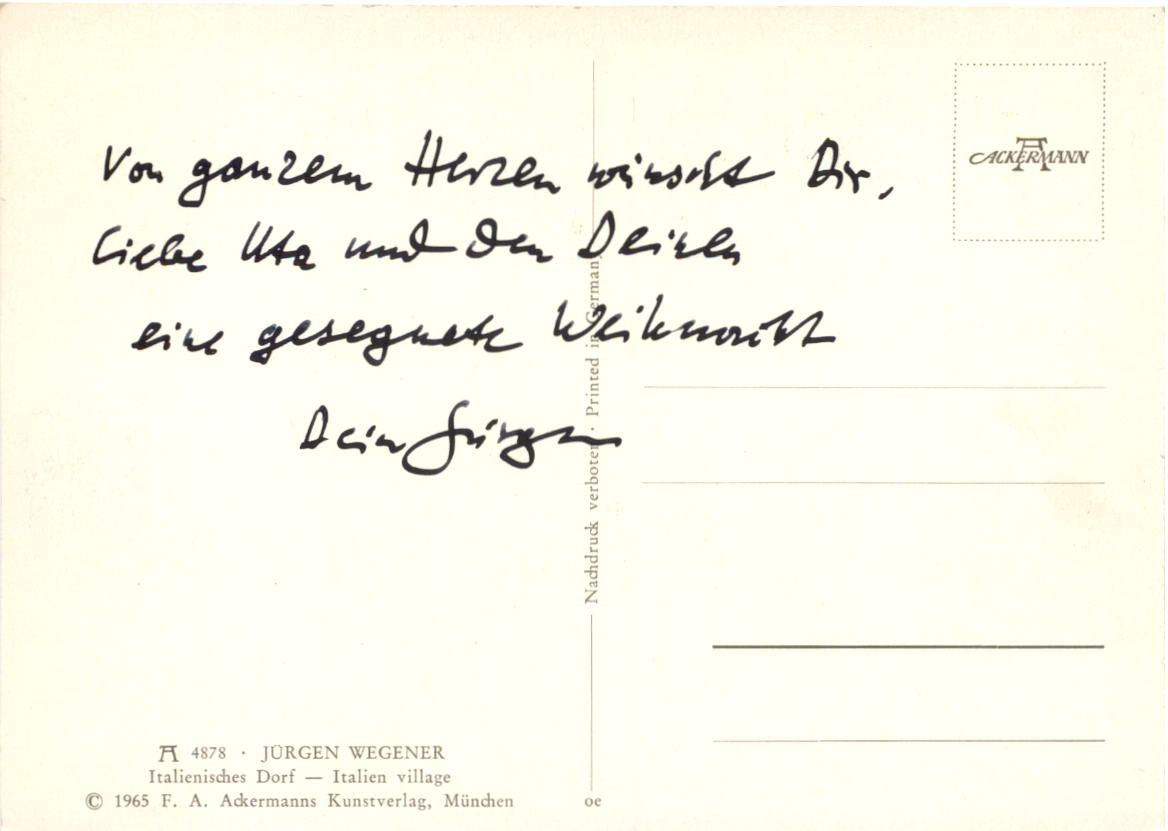 Von ganzem Herzen wünscht Dir,
liebe Uta und den Deinen
eine gesegnete Weihnacht
Dein Jürgen
4878 · JÜRGEN WEGENER
Italienisches Dorf — Italien village
© 1965 F. A. Ackermanns Kunstverlag, München
Nachdruck verboten · Printed in Germany
oe
ACKERMANN